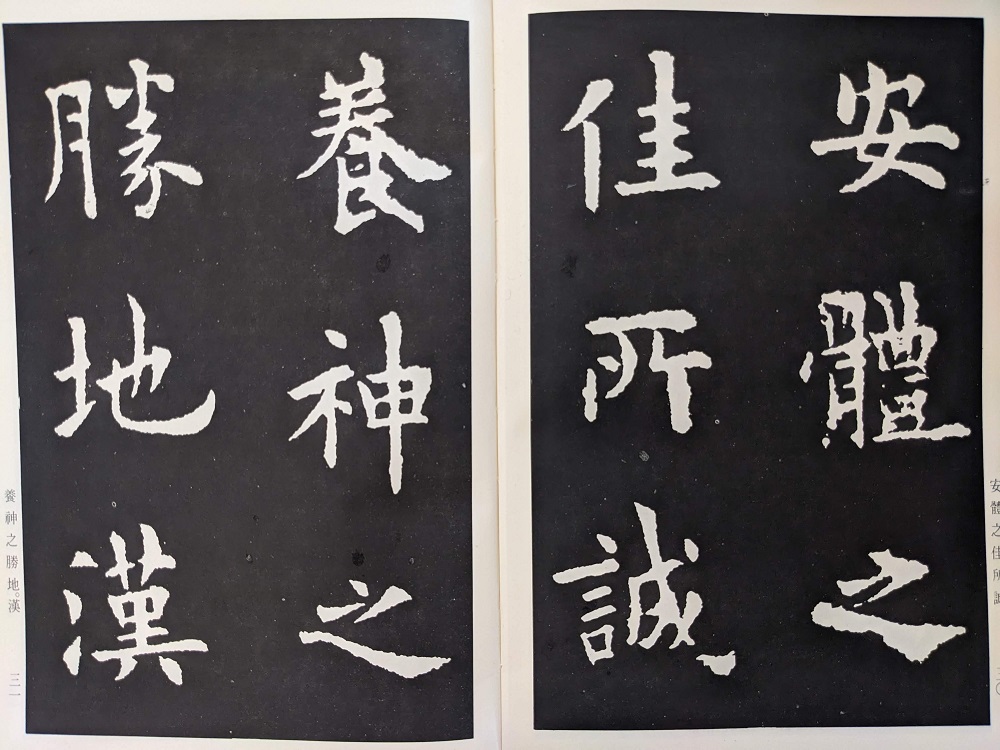 安體之
佳所誠
安體之佳所誠
三〇
養神之
勝地漢
養神之勝地。漢
三一